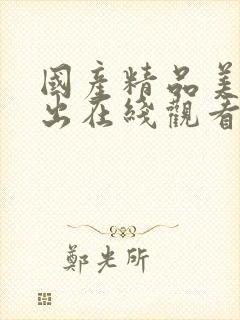 國産精品美
出在綫觀看
鄭光所